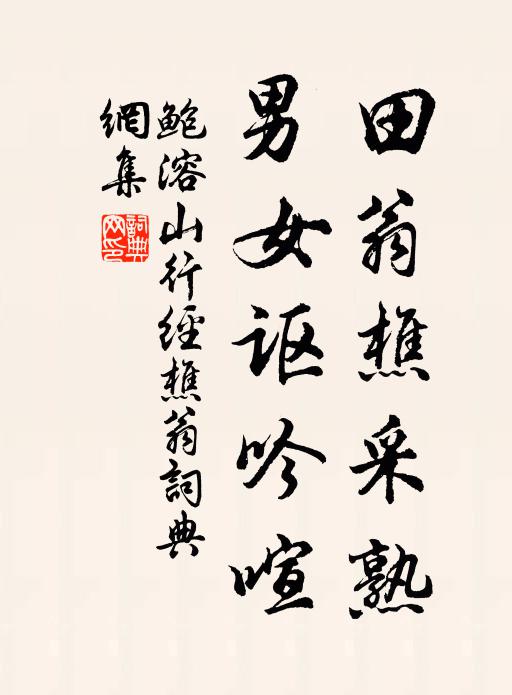 田翁樵采熟
男女讴吟喧
鲍溶山行經樵翁詞典
網集
詞典網印